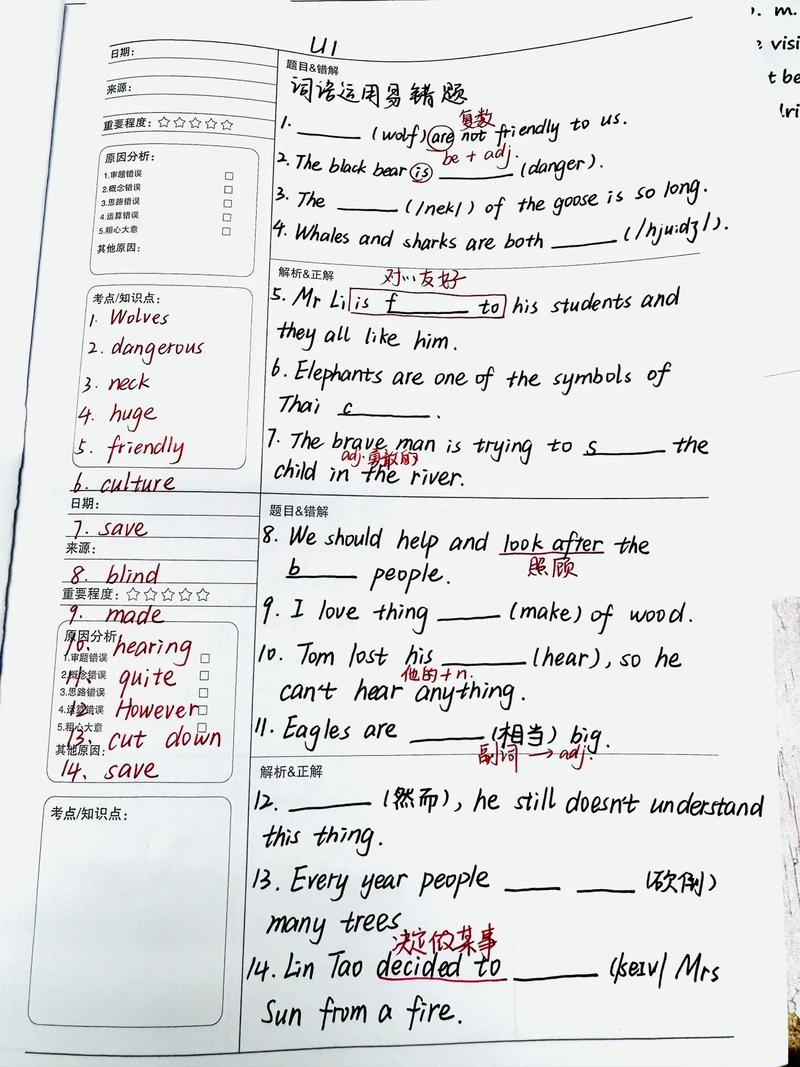 U1
日期:
来源:
重要程度: ☆☆☆☆☆
原因分析:
1.审题错误 □
2.概念错误 □
3.思路错误 □
4.运算错误 □
5.粗心大意 □
其他原因:
考点/知识点:
1. Wolves
2. dangerous
3. neck
4. huge
5. friendly
6. culture
题目&错解
词语运用易错题
复数
1. ______ (wolf) are not friendly to us.
be + adj.
2. The black bear is ______ (danger).
3. The ______ (/nek/) of the goose is so long.
4. Whales and sharks are both ______ (/hjuːdʒ/).
解析&正解
对…友好
5. Mr Li is f______ to his students and
they all like him.
6. Elephants are one of the symbols of
Thai c______.
7. The brave man is trying to s______ the
adj.勇敢的
child in the river.
日期:
7. save
来源:
8. blind
重要程度: ☆☆☆☆☆
9. made
原因分析
10. hearing
1.审题错误 □
11. quite
2.概念错误 □
3.思路错误 □
12. However
4.运算错误 □
5.粗心大意
13. cut down
其他原因:
14. save
考点/知识点:
题目&错解
8. We should help and look after the
照顾
b____ people.
9. I love thing ____ (make) of wood.
10. Tom lost his ______ (hear), so he
他的+n.
can't hear anything.
11. Eagles are ______ (相当) big.
副词 → adj.
解析&正解
12. ______ (然而), he still doesn't understand
this thing.
13. Every year people ____ ____ (砍倒)
many trees
决定做某事
14. Lin Tao decided to ______ (/seɪv/ Mrs
Sun from a fire.
m.
visi
t be